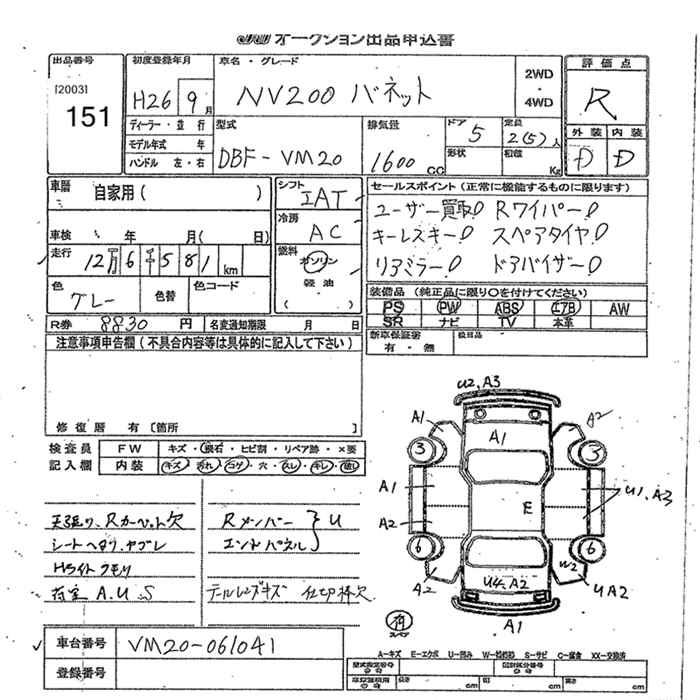 JU オークション出品申込書
出品番号
[2003]
151
初度登録年月
H26 9月
車名・グレード
NV200 バネット
2WD
・
4WD
評価点
R
外装 内装
D D
ディーラー・並行
モデル年式 年
ハンドル 左・右
型式
DBF-VM20
排気量
1600 CC
ドア
5
形状
定員
2(5)人
積載
Kg
車歴
自家用( )
シフト
IAT
セールスポイント(正常に機能するものに限ります)
ユーザー買取! Rワイパー!
キーレスキー! スペアタイヤ!
リアミラー! ドアバイザー!
車検 年 月( 日)
冷房
AC
走行
12万6千581km
燃料
ガソリン
・
軽油
色
グレー
色替
色コード
装備品(純正品に限り○を付けてください)
PS PW ABS エアB AW
SR ナビ TV 本革
R券 8830円
名変通知期限 月 日
新車保証書
有・無
後日品
注意事項申告欄(不具合内容等は具体的に記入して下さい)
修復歴 有 [箇所 ]
検査員
記入欄
FW キズ・飛石・ヒビ割・リペア跡・×要
内装 キズ・汚れ・コゲ・穴・スレ・キレ・破れ
Rカーペット欠
シートヘタリ、ヤブレ
Hライトクモリ
荷室 A.U.S
Rメンバー
エンドパネル
} U
テールレンズキズ 仕切棒欠
U2,A3
A1
A2
A1
3
3
A1
A2
E
U1,A3
6
6
A2
U4,A2
W2
UA2
A1
スペア
車台番号 VM20-061041
登録番号
A-キズ E-エクボ U-凹み S-サビ C-腐食 XX-交換済
型式指定番号
類別区分番号
長さ cm 幅 cm 高さ cm